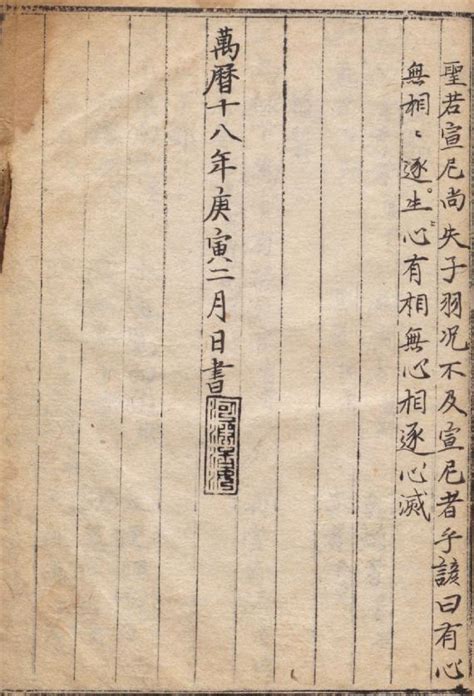 聖若宣尼尚失子羽况不及宣尼者乎諺曰有心
無相〻逐生心有相無心相逐心滅
萬曆十八年庚寅二月日書